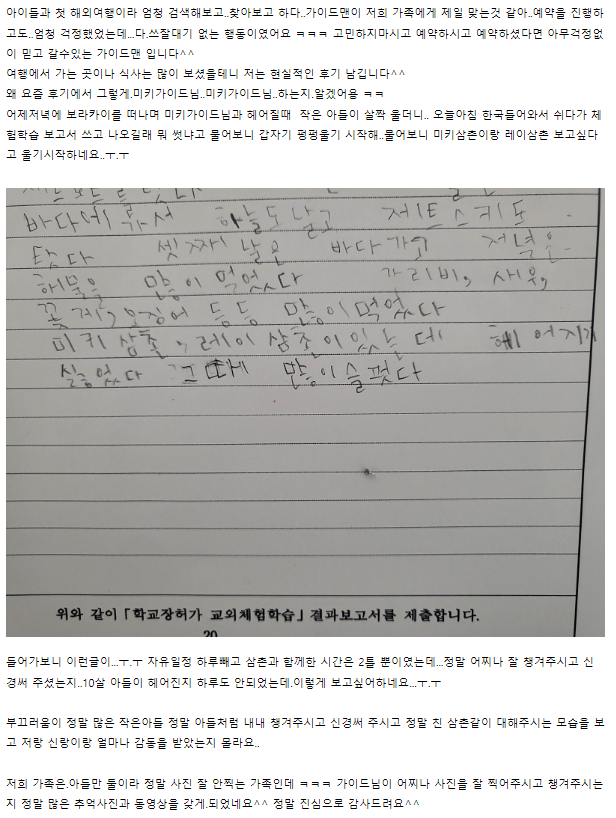 아이들과 첫 해외여행이라 엄청 검색해보고..찾아보고 하다..가이드맨이 저희 가족에게 제일 맞는것 같아..예약을 진행하
고도..엄청 걱정했었는데...다.쓰잘대기 없는 행동이였어요 ㅋㅋㅋ 고민하지마시고 예약하시고 예약하셨다면 아무걱정없
이 믿고 갈수있는 가이드맨 입니다^^
여행에서 가는 곳이나 식사는 많이 보셨을테니 저는 현실적인 후기 남깁니다^^
왜 요즘 후기에서 그렇게.미키가이드님..미키가이드님..하는지.알겠어용 ㅋㅋ
어제저녁에 보라카이를 떠나며 미키가이드님과 헤어질때  작은 아들이 살짝 울더니.. 오늘아침 한국들어와서 쉬다가 체
험학습 보고서 쓰고 나오길래 뭐 썻냐고 물어보니 갑자기 펑펑울기 시작해..물어보니 미키삼촌이랑 레이삼촌 보고싶다
고 울기시작하네요..ㅜ.ㅜ
바다에 가서 하늘도 날고 제트스키도
탔다 셋째 날은 바다가고 저녁은
해물을 많이 먹었다 가리비, 새우,
꽃게, 오징어 등등 많이 먹었다
미키 삼촌, 레이 삼촌이 있는데 헤어지기
싫었다 그때 많이 슬펐다
위와 같이 「학교장허가 교외체험학습」 결과보고서를 제출합니다.
20
들어가보니 이런글이...ㅜ.ㅜ 자유일정 하루빼고 삼촌과 함께한 시간은 2틀 뿐이였는데...정말 어찌나 잘 챙겨주시고 신
경써 주셨는지..10살 아들이 헤어진지 하루도 안되었는데.이렇게 보고싶어하네요...ㅜ.ㅜ
부끄러움이 정말 많은 작은아들 정말 아들처럼 내내 챙겨주시고 신경써 주시고 정말 친 삼촌같이 대해주시는 모습을 보
고 저랑 신랑이랑 얼마나 감동을 받았는지 몰라요..
저희 가족은.아들만 둘이라 정말 사진 잘 안찍는 가족인데 ㅋㅋㅋ 가이드님이 어찌나 사진을 잘 찍어주시고 챙겨주시는
지 정말 많은 추억사진과 동영상을 갖게.되었네요^^ 정말 진심으로 감사드려요^^